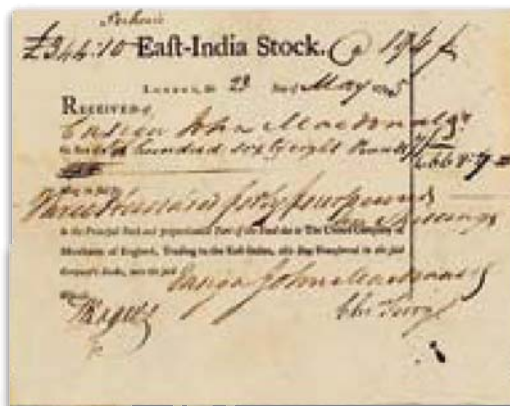 £344:10 East-India Stock. @ 194
LONDON, the 23 Day of May 1795
RECEIVED of
Ensign John Macdonald
the Sum of Six hundred sixty eight Pounds
668.7
being in full for
Three Hundred forty four pounds
ten Shillings
in the Principal Stock and proportionable Part of the Fund due in The United Company of
Merchants of England, Trading to the East-Indies, this Day Transferred in the said
Company's Books, unto the said
Ensign John Macdonald
Witness